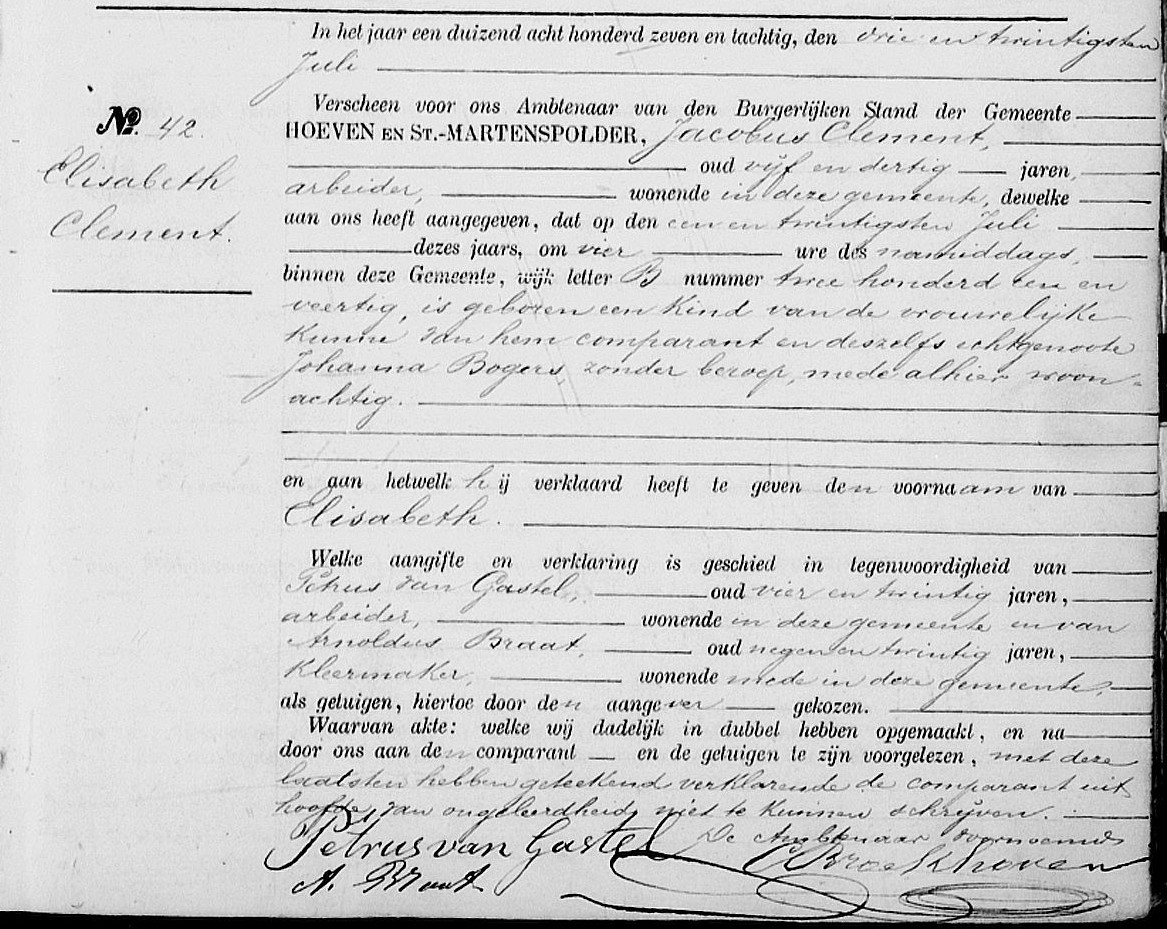 In het jaar een duizend acht honderd zeven en tachtig, den drie en twintigsten
Juli
Verscheen voor ons Ambtenaar van den Burgerlijken Stand der Gemeente
No. 42.
HOEVEN EN ST.-MARTENSPOLDER, Jacobus Clement,
oud vijf en dertig jaren,
Elisabeth
arbeider, wonende in deze gemeente, dewelke
Clement.
aan ons heeft aangegeven, dat op den een en twintigsten Juli
dezes jaars, om vier ure des namiddags,
binnen deze Gemeente, wijk letter B nummer twee honderd een en
veertig, is geboren een kind van de vrouwelijke
kunne van hem comparant en deszelfs echtgenoote
Johanna Bogers, zonder beroep, mede alhier woon-
achtig.
en aan hetwelk hij verklaard heeft te geven den voornaam van
Elisabeth.
Welke aangifte en verklaring is geschied in tegenwoordigheid van
Petrus van Gastel, oud vier en twintig jaren,
arbeider, wonende in deze gemeente en van
Arnoldus Braat, oud negen en twintig jaren,
kleermaker, wonende mede in deze gemeente,
als getuigen, hiertoe door den aangever gekozen.
Waarvan akte: welke wij dadelijk in dubbel hebben opgemaakt, en na
door ons aan den comparant en de getuigen te zijn voorgelezen, met deze
laatsten hebben geteekend verklarende de comparant uit
hoofde van ongeleerdheid niet te kunnen schrijven.
De Ambtenaar voornoemd
Petrus van Gastel Broekhoven
A. Braat